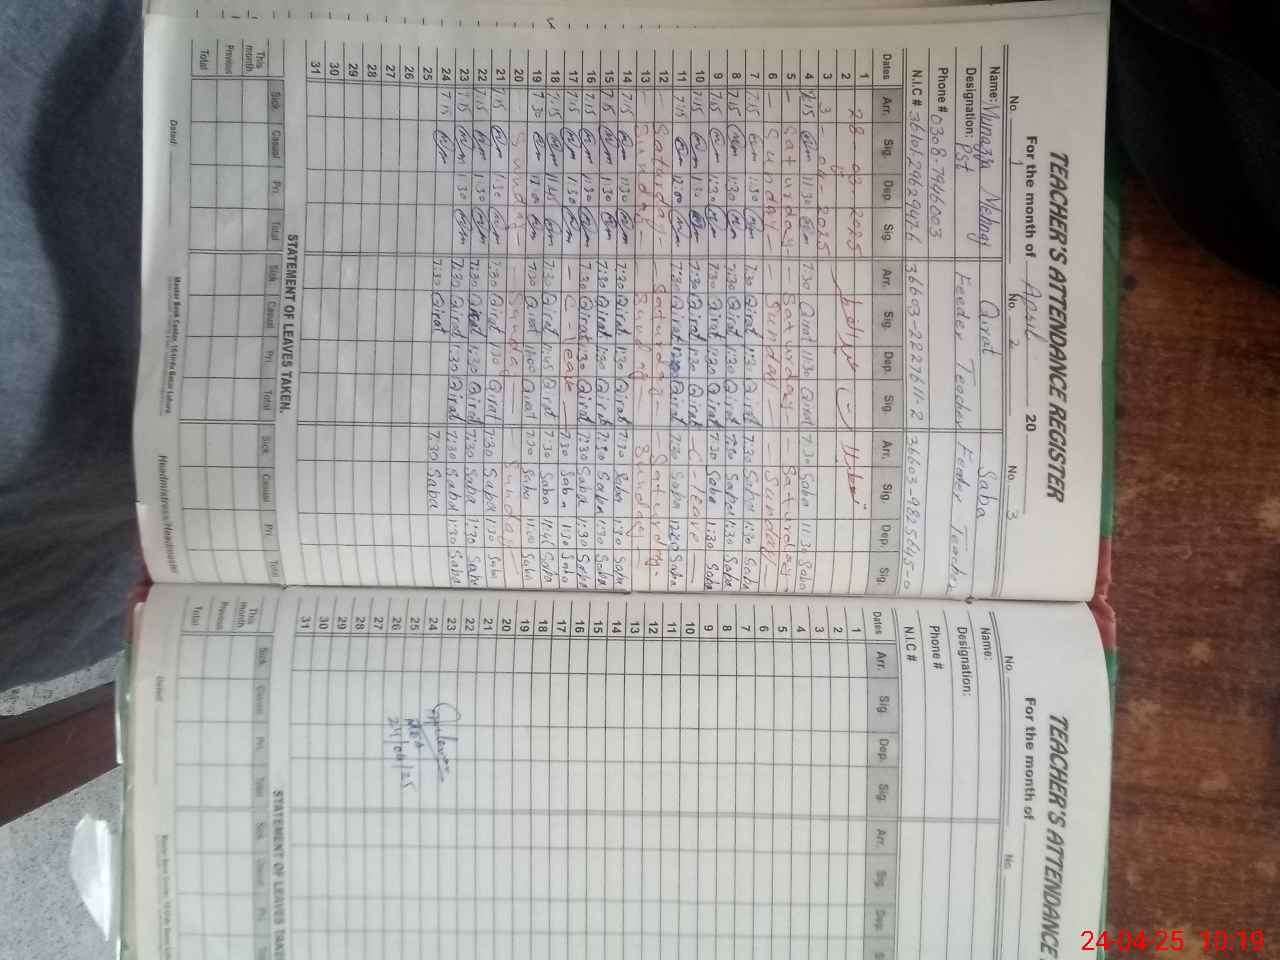 TEACHER'S ATTENDANCE REGISTER
For the month of April 20
No. 1 No. 2 No. 3
Name: Qirat Saba
Designation: PST Feeder Teacher Feeder Teacher
Phone # 0308-7946003
N.I.C #
Dates Arr. Sig. Dep. Sig. Arr. Sig. Dep. Sig. Arr. Sig. Dep. Sig.
1 28-03-2025
2
3 3-04-2025
4 7:15 11:30 7:30 Qirat 11:30 Qirat 7:30 Saba 11:30 Saba
5 - Saturday - - Saturday - - Saturday -
6 - Sunday - - Sunday - - Sunday -
7 7:15 1:30 7:30 Qirat 1:30 Qirat 7:30 Saba 1:30 Saba
8 7:15 1:30 7:30 Qirat 1:30 Qirat 7:30 Saba 1:30 Saba
9 7:15 1:30 7:30 Qirat 1:30 Qirat 7:30 Saba 1:30 Saba
10 7:15 1:30 7:30 Qirat 1:30 Qirat - C - leave -
11 7:15 12:00 7:30 Qirat 12:00 Qirat 7:30 Saba 12:00 Saba
12 - Saturday - - Saturday - - Saturday -
13 - Sunday - - Sunday - - Sunday -
14 7:15 1:30 7:30 Qirat 1:30 Qirat 7:30 Saba 1:30 Saba
15 7:15 1:30 7:30 Qirat 1:30 Qirat 7:30 Saba 1:30 Saba
16 7:15 1:30 7:30 Qirat 1:30 Qirat 7:30 Saba 1:30 Saba
17 7:15 1:30 - C - leave - 7:30 Saba 1:30 Saba
18 7:15 11:45 7:30 Qirat 11:45 Qirat 7:30 Saba 11:45 Saba
19 7:30 7:30 Qirat 11:00 Qirat 7:30 Saba 11:00 Saba
20 - Sunday - - Sunday - - Sunday -
21 7:15 1:30 7:30 Qirat 1:30 Qirat 7:30 Saba 1:30 Saba
22 7:15 1:30 7:30 Qirat 1:30 Qirat 7:30 Saba 1:30 Saba
23 7:15 1:30 7:30 Qirat 1:30 Qirat 7:30 Saba 1:30 Saba
24 7:15 7:30 Qirat 7:30 Saba
25
26
27
28
29
30
31
STATEMENT OF LEAVES TAKEN.
Sick Casual Pri. Total Sick Casual Pri. Total Sick Casual Pri. Total
This month
Previous
Total
Dated:
Headmistress/Headmaster
TEACHER'S ATTENDANCE
For the month of
No. No.
Name:
Designation:
Phone #
N.I.C #
Dates Arr. Sig. Dep. Sig. Arr. Sig. Dep. Sig.
1
2
3
4
5
6
7
8
9
10
11
12
13
14
15
16
17
18
19
20
21
22
23
24
25
26
27
28
29
30
31
24/04/25
STATEMENT OF LEAVES TAKEN
Sick Casual Pri. Total Sick Casual Pri.
This month
Previous
Total
Dated:
24-04-25 10:19